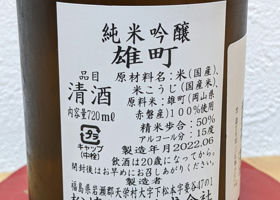 純米吟醸
雄町
品目
清酒
内容量720㎖
原材料名：米(国産)、
米こうじ(国産米)
原料米：雄町(岡山県
赤磐産)100%使用
精米歩合：50%
アルコール分：15度
キャップ
(中栓)
製造年月2022.06
飲酒は20歳になってから。
開封後はお早めにお召し上がりください。
製造者
福島県岩瀬郡天栄村大字下松本字要谷47の1